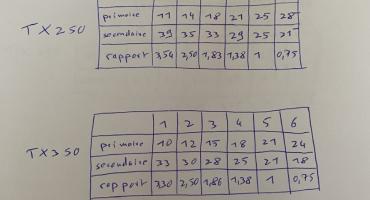 TX250
primaire 11 14 18 21 25 28
secondaire 39 35 33 29 25 21
rapport 3,54 2,50 1,83 1,38 1 0,75
TX350
1 2 3 4 5 6
primaire 10 12 15 18 21 24
secondaire 33 30 28 25 21 18
rapport 3,30 2,50 1,86 1,38 1 0,75